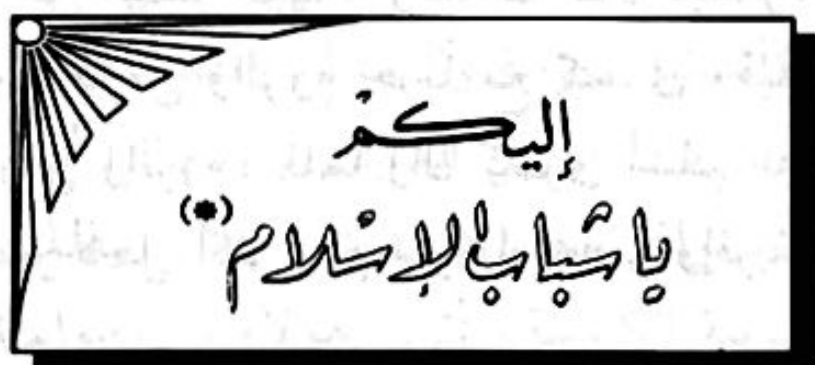 إليكم
يا شباب الإسلام (*)